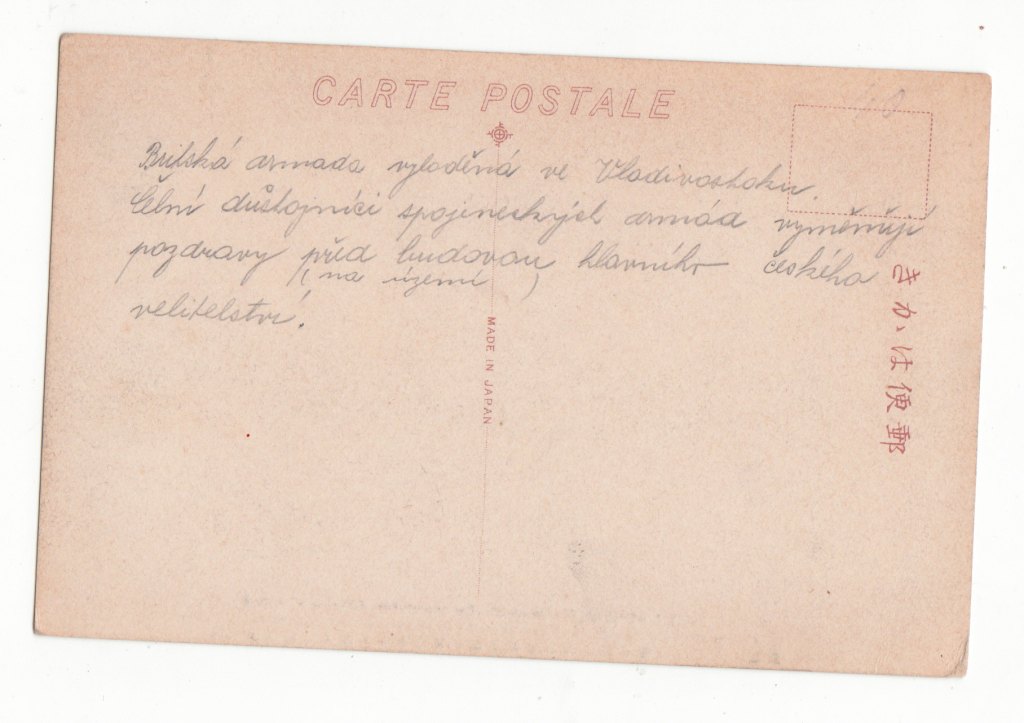 CARTE POSTALE
Britská armada vyloděná ve Vladivostoku.
Čelní důstojníci spojeneckých armád vyměňují
pozdravy před budovou hlavního českého
(na území )
velitelství.
MADE IN JAPAN
きかゝは便郵